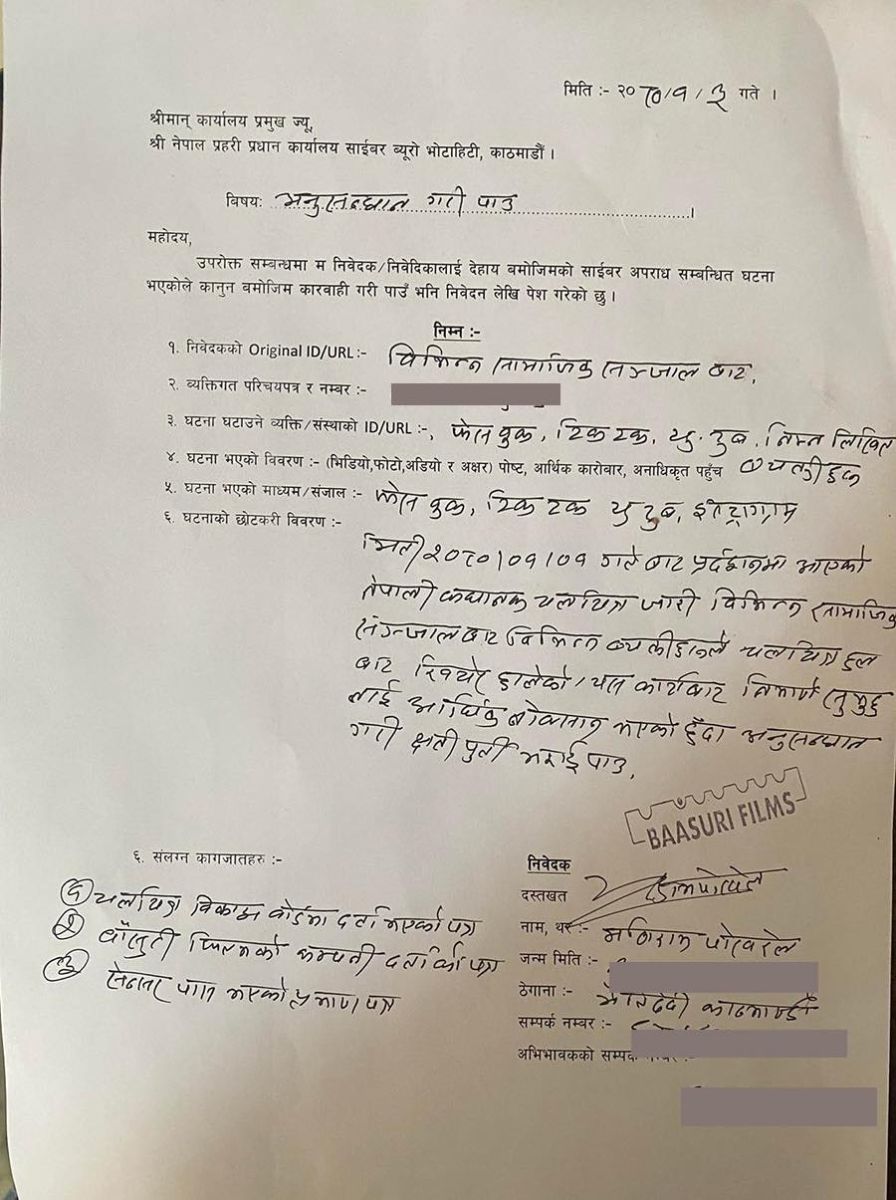 मिति :- २०८०/१/३ गते ।
श्रीमान् कार्यालय प्रमुख ज्यू,
श्री नेपाल प्रहरी प्रधान कार्यालय साईबर ब्यूरो भोटाहिटी, काठमाडौं ।
विषयः अनुसन्धान गरी पाउ ।
महोदय,
उपरोक्त सम्बन्धमा म निवेदक/निवेदिकालाई देहाय बमोजिमको साईबर अपराध सम्बन्धित घटना
भएकोले कानुन बमोजिम कारवाही गरी पाउँ भनि निवेदन लेखि पेश गरेको छु ।
निम्न :-
१. निवेदकको Original ID/URL :- विभिन्न सामाजिक सञ्जाल बाट,
२. व्यक्तिगत परिचयपत्र र नम्बर :-
३. घटना घटाउने व्यक्ति/संस्थाको ID/URL :-, फेस बुक, टिक टक, यु टुब, निम्न लिखित
४. घटना भएको विवरण :- (भिडियो,फोटो,अडियो र अक्षर) पोष्ट, आर्थिक कारोबार, अनाधिकृत पहुँच
५. घटना भएको माध्यम/संजाल :- फेस बुक, टिक टक यु टुब, इन्स्टाग्राम
६. घटनाको छोटकरी विवरण :-
मिती २०८०।०१।०१ गते बाट प्रर्दशनमा आएको
नेपाली कथानक चलचित्र जारी विभिन्न सामाजिक
सञ्जाल बाट विभिन्न ब्यक्तीहरुले चलचित्र हल
बाट खिचेर हालेको, यस कार्यबाट निर्माण समुह
लाई आर्थिक नोक्सान भएको हुँदा अनुसन्धान
गरी क्षती पुर्ती भराई पाउ,
BAASURI FILMS
६. संलग्न कागजातहरु :-
१ चलचित्र विकास बोर्डमा दर्ता भएको पत्र
२ बाँसुरी फिल्मको कम्पनी दर्ताको पत्र
३ सेन्सर पास भएको प्रमाण पत्र
निवेदक
दस्तखत
नाम, थर :- मणिराम पोखरेल
जन्म मिति :-
ठेगाना :- काठमाण्डौ
सम्पर्क नम्बर :-
अभिभावकको सम्पर्क